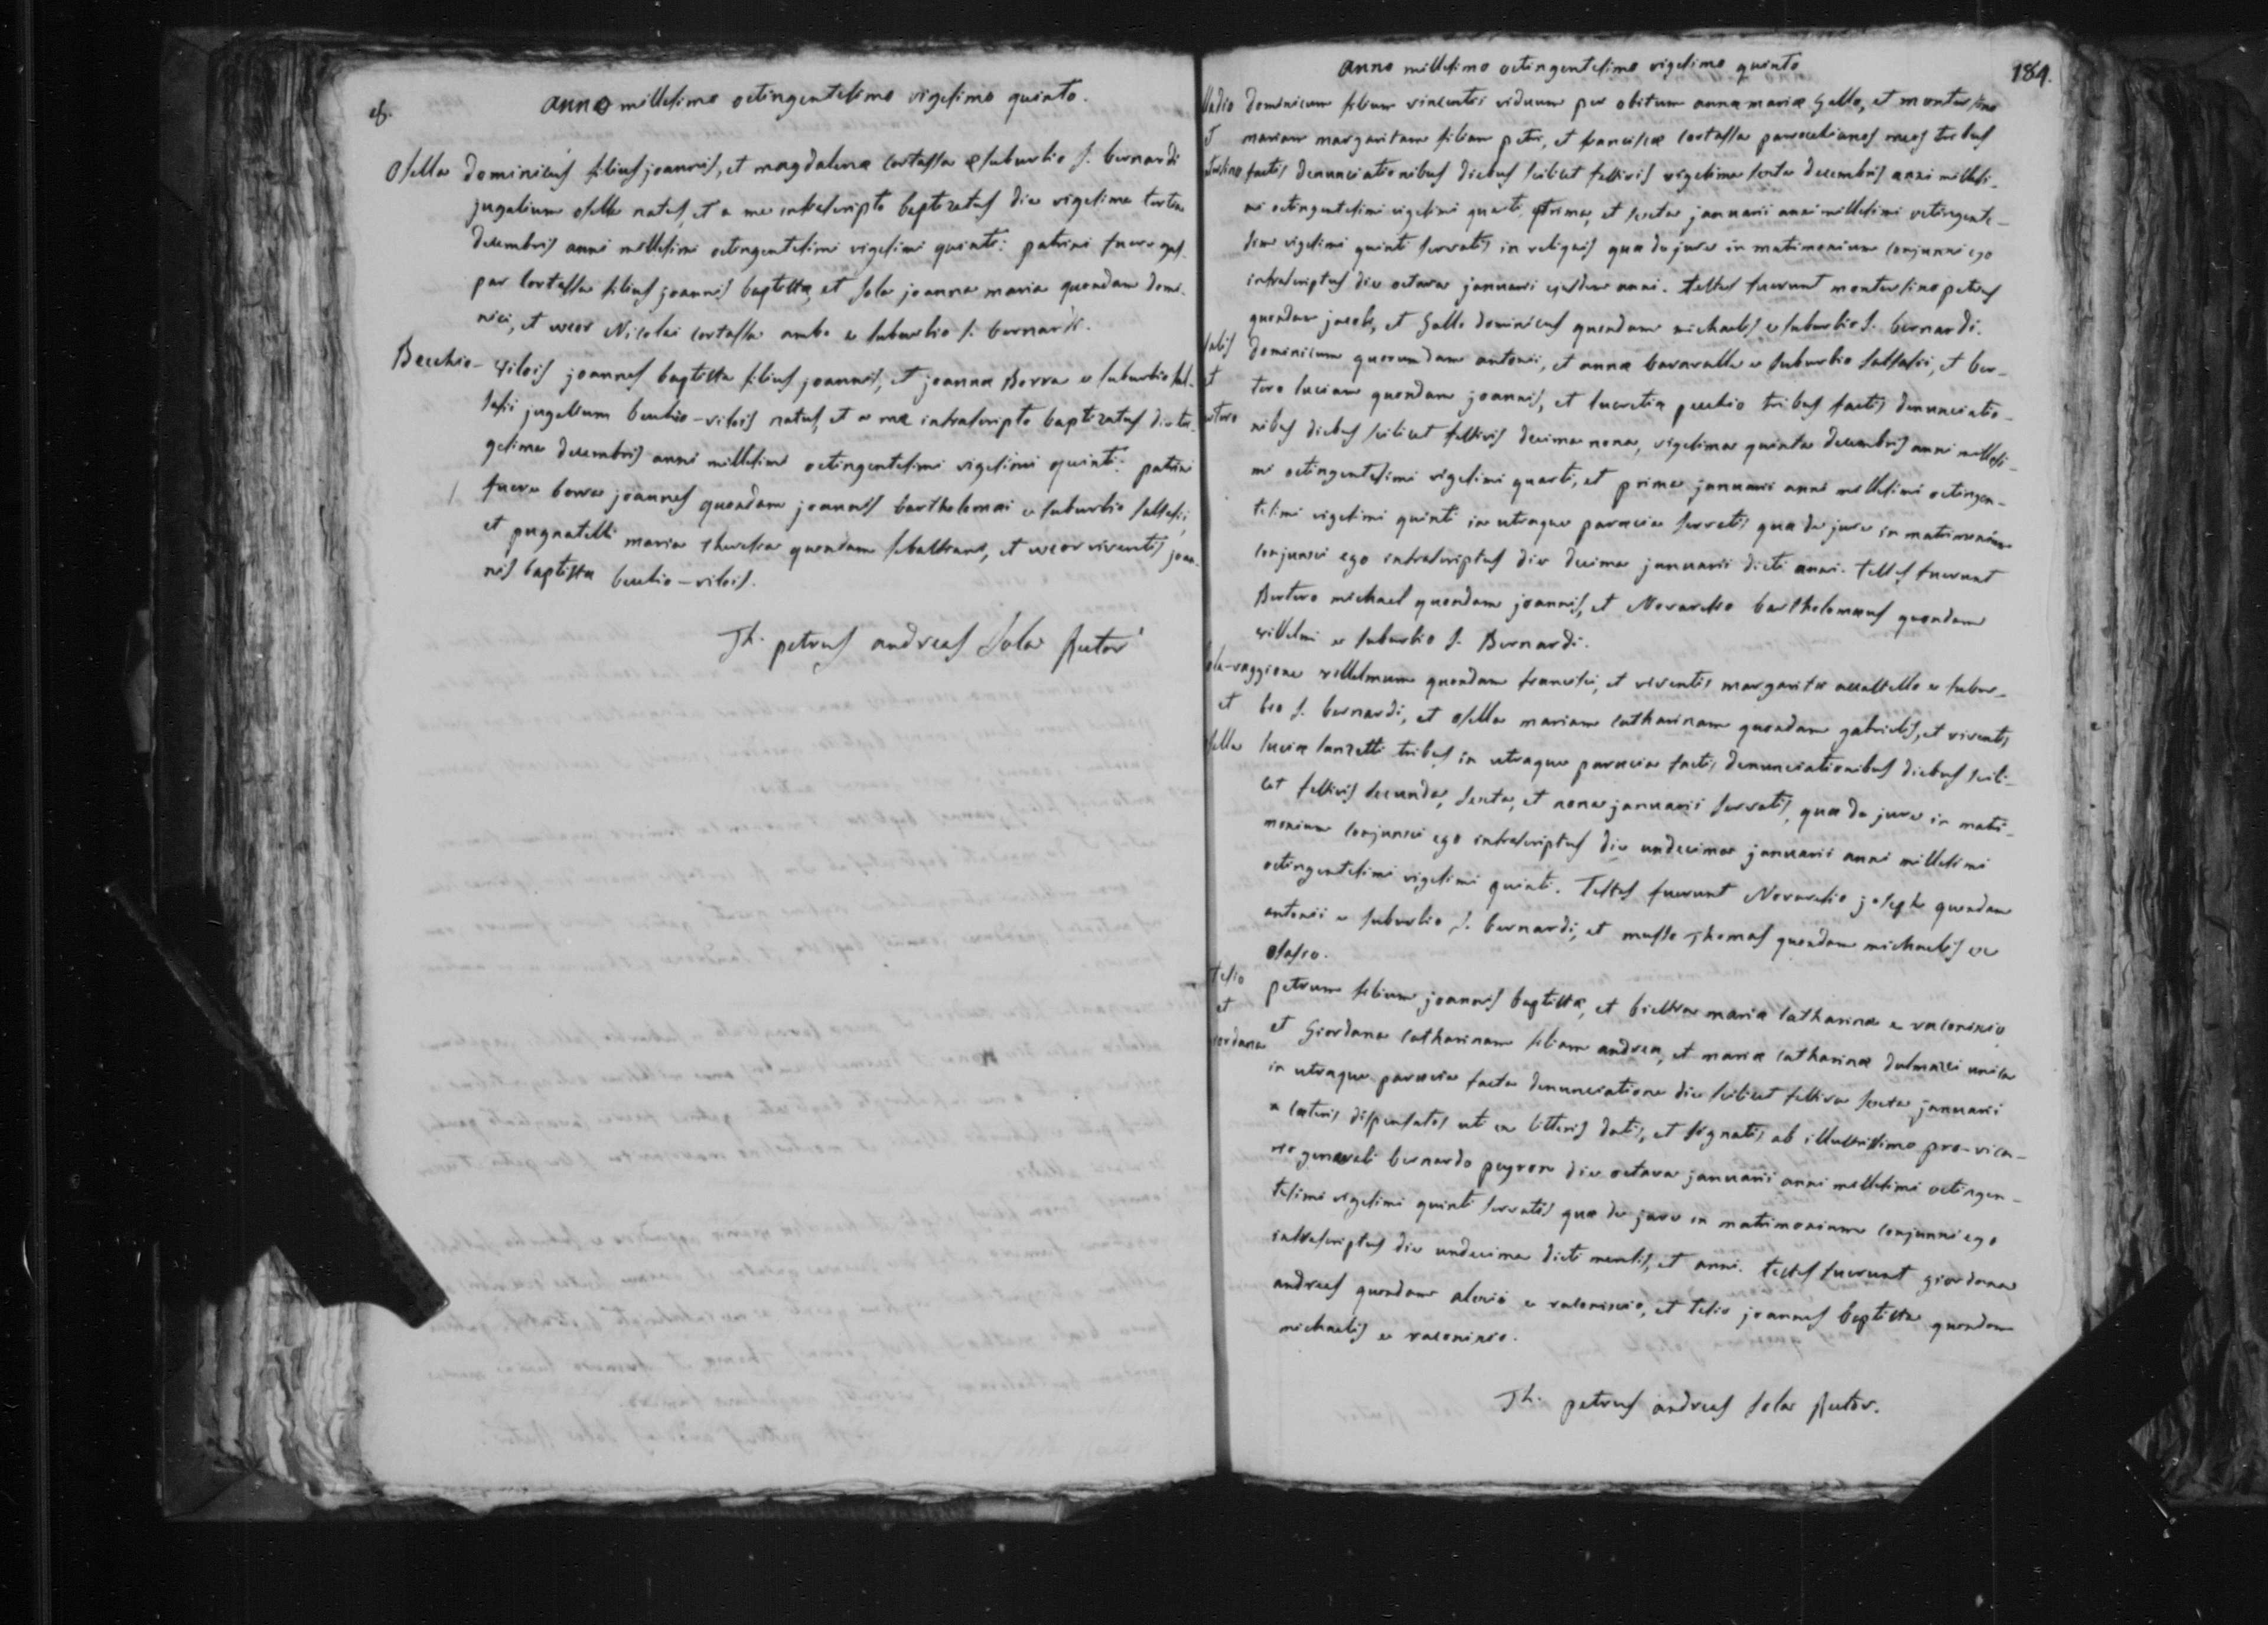 Anno millesimo octingentesimo vigesimo quinto.
Osella Dominicus filius joannis, et magdalenæ cortassa e suburbio s. bernardi
jugalium osella natus, et a me infrascripto baptizatus die vigesima tertia
decembris anni millesimi octingentesimi vigesimi quinti: patrini fuere gas-
par cortassa filius joannis baptistæ, et sola joanna maria quondam domi-
nici, et uxor Nicolai cortassa ambo e suburbio s. bernardi.
Becchio- joannes baptista filius joannis, et joannæ Borra e suburbio sal-
sasii jugalium becchio- natus, et a me infrascripto baptizatus die tri-
gesima decembris anni millesimi octingentesimi vigesimi quinti: patrini
fuere borra joannes quondam joannis bartholomæi e suburbio salsasii,
et pugnatelli maria theresia quondam sebastiani, et uxor viventis joan-
nis baptistæ becchio-
Th. petrus andreas Sola Rector
184.
Anno millesimo octingentesimo vigesimo quinto
dominicum filium vincentii viduum per obitum annæ mariæ Gallo, et montersino
et mariam margaritam filiam petri, et franciscæ cortassa parochianos meos tribus
factis denunciationibus diebus scilicet festivis vigesima sexta decembris anni millesi-
mi octingentesimi vigesimi quarti, prima, et sexta januarii anni millesimi octingente-
simi vigesimi quinti servatis in reliquis quæ de jure in matrimonium conjunxi ego
infrascriptus die octava januarii ejusdem anni. testes fuerunt montersino petrus
quondam jacobi, et Gallo dominicus quondam michaelis e suburbio s. bernardi.
dominicum quorumdam antonii, et annæ bavaralla e suburbio salsasii, et ber-
et tero luciam quondam joannis, et lucretiæ pecchio tribus factis denunciatio-
nibus diebus scilicet festivis decima nona, vigesima quinta decembris anni millesi-
mi octingentesimi vigesimi quarti, et prima januarii anni millesimi octingen-
tesimi vigesimi quinti in utraque parœcia servatis quæ de jure in matrimonium
conjunxi ego infrascriptus die decima januarii dicti anni. testes fuerunt
Bertero michael quondam joannis, et Novaresio bartholomæus quondam
villelmi e suburbio s. Bernardi.
villelmum quondam francisci, et viventis margaritæ accastello e subur-
et bio s. bernardi, et osella mariam catharinam quondam gabrielis, et viventis
luciæ lanzetti tribus in utraque parœcia factis denunciationibus diebus scili-
cet festivis secunda, sexta, et nona januarii servatis, quæ de jure in matri-
monium conjunxi ego infrascriptus die undecima januarii anni millesimi
octingentesimi vigesimi quinti. Testes fuerunt Novaresio joseph quondam
antonii e suburbio s. bernardi, et musso Thomas quondam michaelis ex
olasio.
tesio petrum filium joannis baptistæ, et mariæ catharinæ e raconisio,
et et Giordana catharinam filiam andreæ, et mariæ catharinæ dalmazzi unica
in utraque parœcia facta denunciatione die scilicet festiva sexta januarii
a cæteris dispensatos ut ex litteris datis, et signatis ab illustrissimo pro-vica-
rio generali bernardo peyron die octava januarii anni millesimi octingen-
tesimi vigesimi quinti servatis quæ de jure in matrimonium conjunxi ego
infrascriptus die undecima dicti mensis, et anni. testes fuerunt giordana
andreas quondam alexii e raconisio, et tesio joannes baptista quondam
michaelis e raconisio.
Th. petrus andreas Sola Rector.